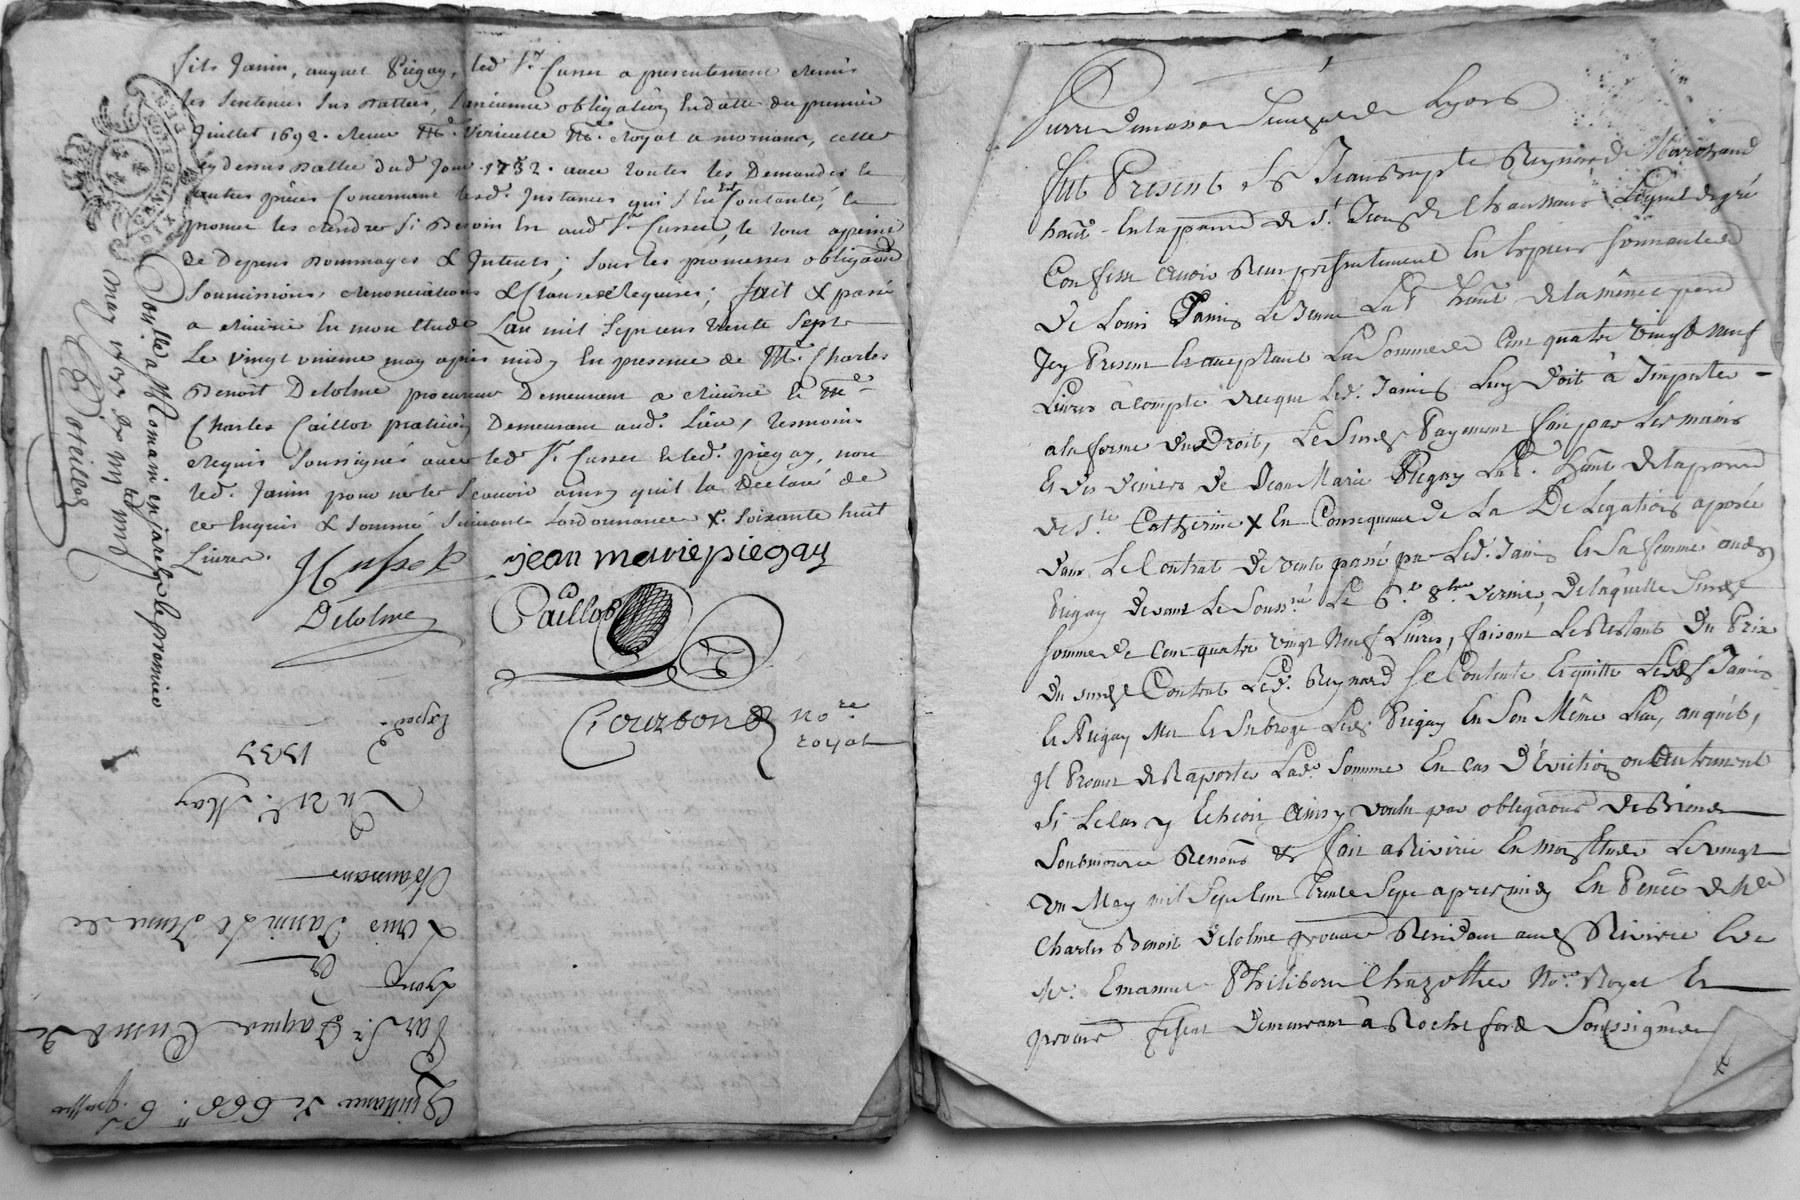 fils Janin, auquel Piegay, led. Sr. Cusset a presentement remis
les sentences sus dattées, l'ancienne obligation en datte du premier
Juillet 1692. receue Me. Royal a mornant, celle
cy dessus dattée dud. Jour 1732. avec toutes les demandes et
autres pièces concernant lesd. Instances qui s'en est contanté, et
promet les rendre si besoin est aud. Sr. Cusset, le tout a peine
de depens dommages & Interets; sous les promesses obligaons
soumissions, renonciations & clauses requises; fait & passé
a riverie en mon etude L'an mil sept cens trente sept
Le vingt unieme may apres midy en presence de Me. Charles
Benoît Delolme procureur Demeurant a riverie et Me.
Charles Caillot praticien Demeurant aud. Lieu, tesmoins
requis soussignés avec led. Sr. Cusset et led. piegay, non
led. Janin pour ne le scavoir ainsy quil la déclaré de
ce enquis & sommé suivant lordonnance X. soixante huit
Livres.
Cusset
jean marie piegay
Delolme
Caillot
Courbon
no.re
royal
GENER DE LYON
Con.lle a St Romain en jarest le premier
may 1737
Expéd.
1737
Du 21e. May
Chaussan
Louis Janin le Jeune de
Lyon
Par Sr. Jaques Cusset de
Quittance de 668.ll 6.s
Pierre Lyon
fut Present Sr Jean Bapt.te Reynard Marchand
hant. en la paroisse de St. Jean de Chaussan Lequel de gré
Confesse avoir Reçu presentement en Especes sonnantes
De Louis Janin Le Jeune Lab.r hant. de la même par.
Icy Present et aceptant La somme de Cent quatre vingt neuf
Livres à compte de ce que led. Janin Luy doit à Imputer
a la forme du Droit, Le susd. Payement fait par les mains
et des deniers de Jean Marie Piegay Lab.r hant. de la par.
de Ste. Catherine X En Consequence de La Delegation aporée
dans Le Contrat de vente passé par led. Janin et sa femme aud.
Piegay devant Le Sous.né Le 6.e 8.bre dernier, de laquelle susd.
somme de cent quatre vingt Neuf Livres, faisant Le Restant du Prix
du susd. Contrat Led. Reynard se Contente et quitte Lesd. Janin
et Piegay Met et Subroge Led. Piegay En son Même Lieu, au quit,
Il Promet de Raporter Lad. somme En cas D'éviction ou autrement
Si Le cas y Echeoit Ainsy voulu par obligaons de Biens
Soubmons Renons &c fait a Riverie En mon Etude Le vingt
un May mil Sept Cent trente Sept apres midy En Pence de Me
Charles Benoit Delolme procur Residant aud. Riverie et de
Me. Emanuel Philibert Chazotte No.re Royal et
procur fiscal Demeurant à Rochefort Soussignés
X